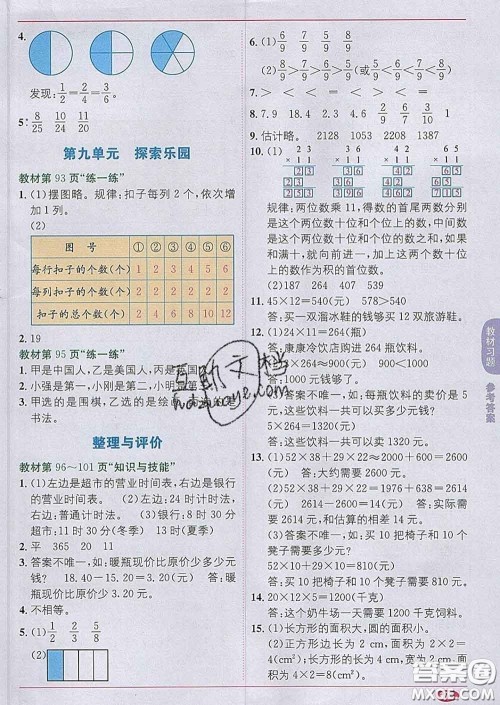 4.
发现：1/2=2/4=3/6。
5. 8/25 10/24 11/20
第九单元 探索乐园
教材第 93 页“练一练”
1. (1)摆图略。规律：扣子每列 2 个，依次增
加 1 列。
(2)
图 号 ① ② ③ ④ ⑤ ⑥
每行扣子的个数(个) 1 2 3 4 5 6
每列扣子的个数(个) 2 2 2 2 2 2
扣子的总个数(个) 2 4 6 8 10 12
2. 19
教材第 95 页“练一练”
1. 甲是中国人，乙是美国人，丙是英国人。
2. 小强是第一，小刚是第二，小明是第三。
3. 甲选的是围棋，乙选的是绘画
整理与评价
教材第 96～101 页“知识与技能”
1. (1)左边是超市的营业时间，右边是银行的
营业时间表。 (2)左边：24 时计时法，
右边：普通计时法。 (3)银行：8 时 30 分
超市：11 时 30 分(冬季) 13 时(夏季)
2. 平 365 20 11
3. 答案不唯一，如：暖瓶现价比原价少多少元
钱？ 18.40－15.20=3.20(元) 答：暖
瓶现价比原价少 3.20 元。
4. 不相等。
5. (1) 1/2 1/3 2/5
(2)
6. (1) 6/9 7/9 5/9 2/9 4/9 3/9
(2) 2/9<3/9<4/9<5/9<6/9<7/9
7. > < < > < >
8. 7.9 18.4 2.3 4.6 2/9 6/10 1
9. 估计略。 2128 1053 2208 1387
10. (1)
规律：两位数乘 11，得数的首尾两数分别
是这个两位数十位和个位上的数，中间数
是这个两位数十位和个位的数之和，如果
和满十，就向前进一，加上这个两位数十位
上的数作为积的首位数。
(2)187 264 341 352 363 374 385
11. 45×12=540(元) 540>530
答：买一双溜冰鞋的钱够买 12 双旅游鞋。
12. (1)24×11=264(瓶)
答：康康冷饮店购进 264 瓶饮料。
答：1000 元钱够了。
答案不唯一，如：每瓶饮料的卖价是 5
元，一共可以卖多少元钱？
264×5=1320(元)
答：一共可以卖 1320 元。
13. (1)52×38+29×22≈2000+600=2600
(元) 答：大约需要 2600 元。
(2)52×38+29×22=1976+638=2614
(元) 2614－2600=14(元) 答：实际需
要 2614 元，和估算的相差 14 元。
(3)答案不唯一，如：买 10 把椅子和 10 个
凳子需要多少元？
52×10+29×10=810(元)
答：买 10 把椅子和 10 个凳子需要 810 元。
答：这个奶牛场一天需要 1200 千克饲料。
15. (1)长方形的面积大，圆的面积小。
(2)正方形边长是 2 cm，面积：2×2=
4(cm²)；长方形的长是 4 cm，宽是 2 cm，
教材习题
参考答案